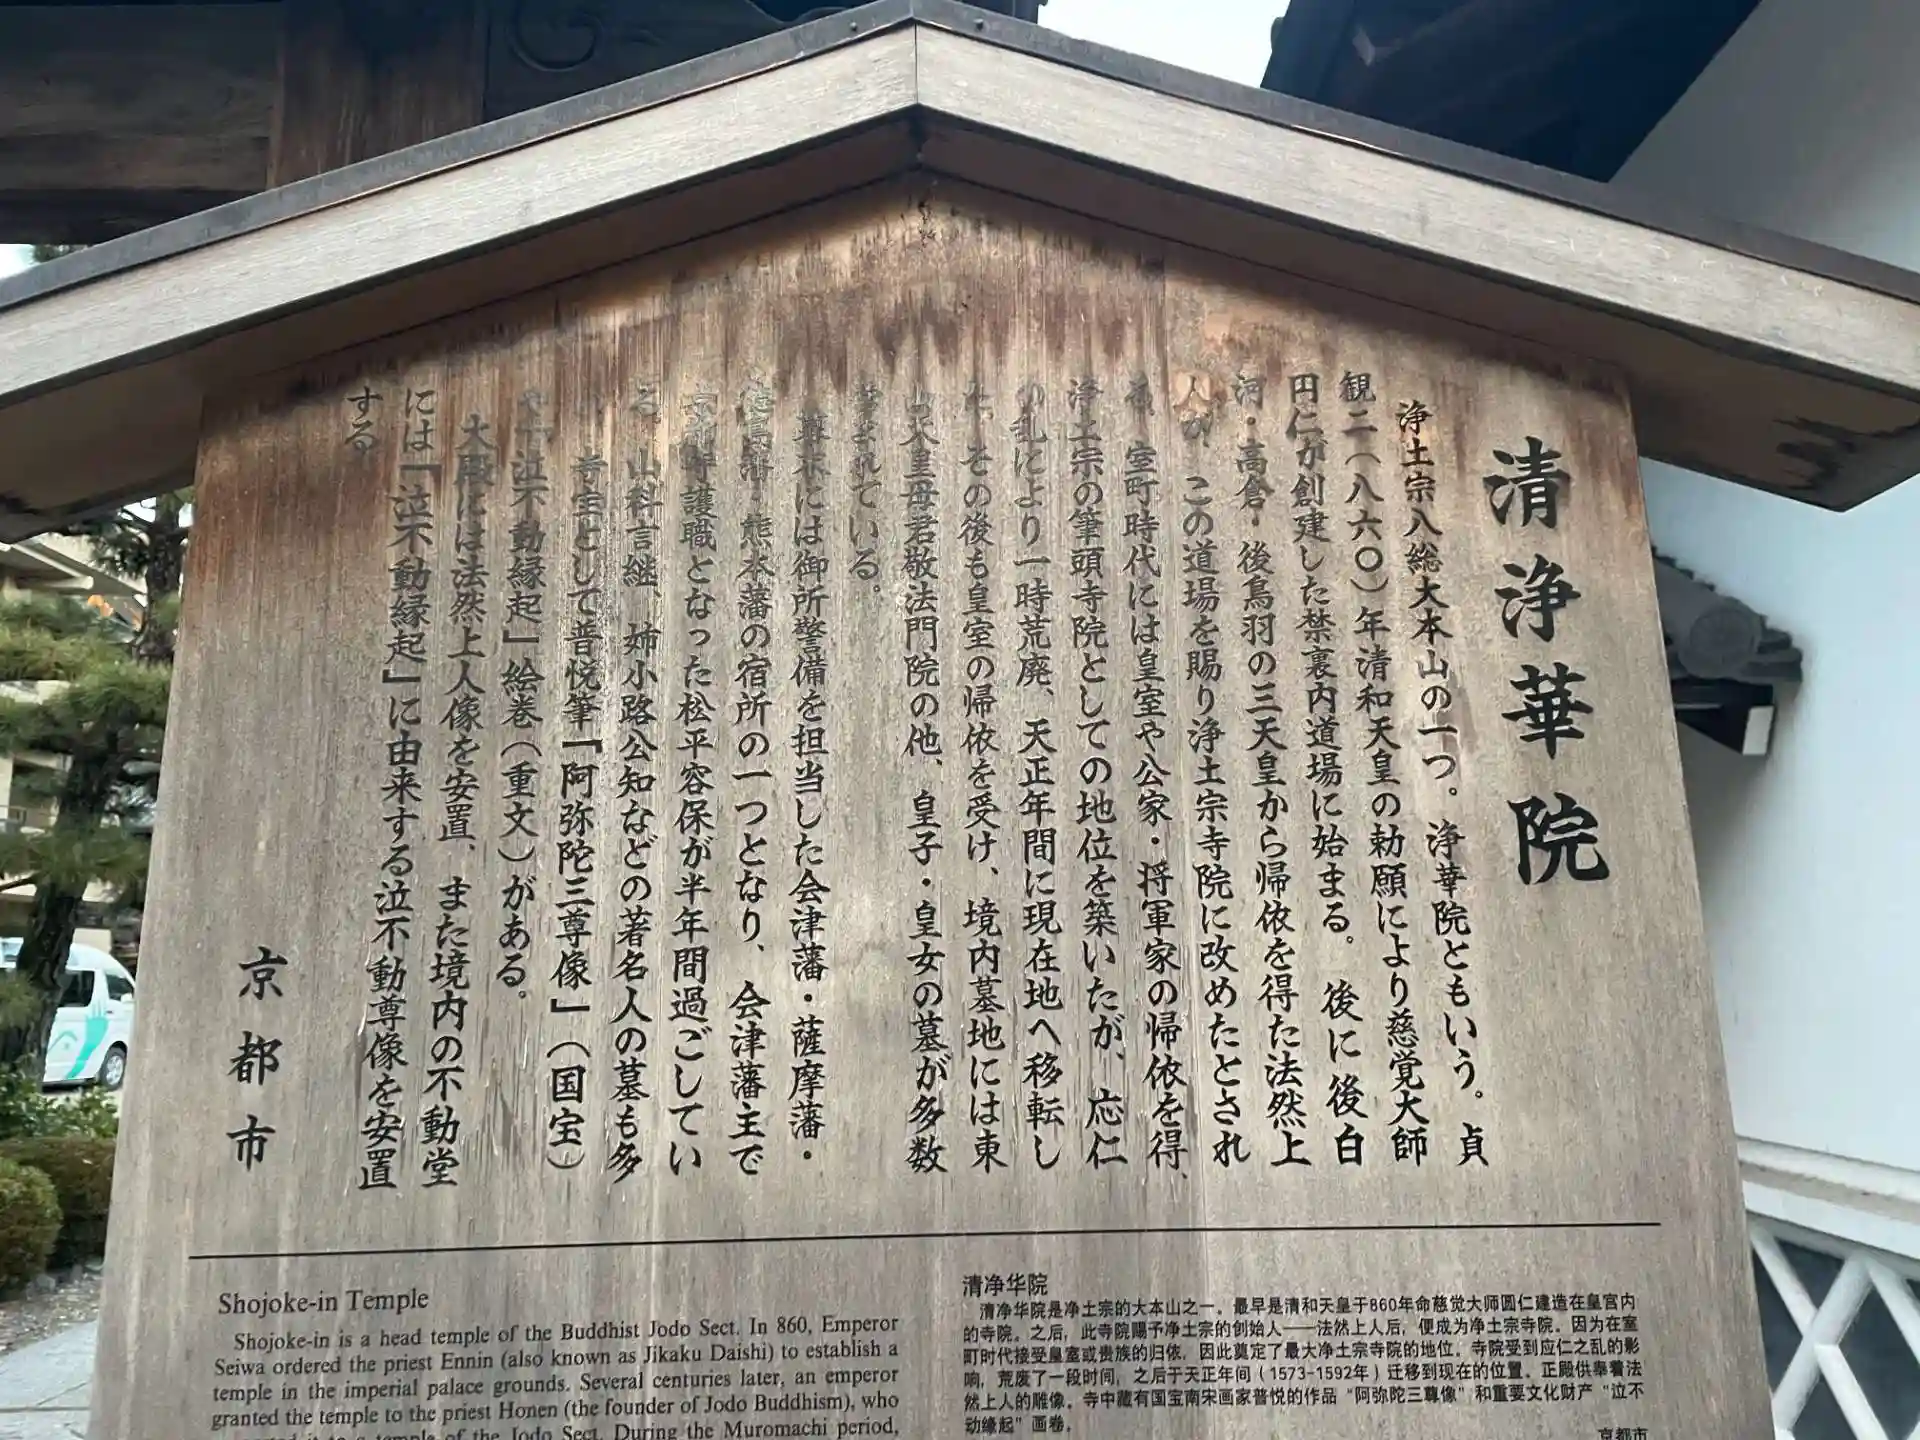 清浄華院
浄土宗八総大本山の一つ。浄華院ともいう。貞
観二(八六〇)年清和天皇の勅願により慈覚大師
円仁が創建した禁裏内道場に始まる。後に後白
河・高倉・後鳥羽の三天皇から帰依を得た法然上
人が、この道場を賜り浄土宗寺院に改めたとされ
室町時代には皇室や公家・将軍家の帰依を得、
浄土宗の筆頭寺院としての地位を築いたが、応仁
の乱により一時荒廃、天正年間に現在地へ移転し
た。その後も皇室の帰依を受け、境内墓地には東
山天皇母君敬法門院の他、皇子・皇女の墓が多数
営まれている。
幕末には御所警備を担当した会津藩・薩摩藩・
徳島藩・熊本藩の宿所の一つとなり、会津藩主で
京都守護職となった松平容保が半年間過ごしてい
る。山科言継、姉小路公知などの著名人の墓も多
寺宝として普悦筆「阿弥陀三尊像」(国宝)
や「泣不動縁起」絵巻(重文)がある。
大殿には法然上人像を安置、また境内の不動堂
には「泣不動縁起」に由来する泣不動尊像を安置
する
京都市
Shojoke-in Temple
Shojoke-in is a head temple of the Buddhist Jodo Sect. In 860, Emperor
Seiwa ordered the priest Ennin (also known as Jikaku Daishi) to establish a
temple in the imperial palace grounds. Several centuries later, an emperor
granted the temple to the priest Honen (the founder of Jodo Buddhism), who
it to a temple of the Jodo Sect. During the Muromachi period,
清净华院
清净华院是净土宗的大本山之一。最早是清和天皇于860年命慈觉大师圆仁建造在皇宫内
的寺院。之后，此寺院赐予净土宗的创始人——法然上人后，便成为净土宗寺院。因为在室
町时代接受皇室或贵族的归依，因此奠定了最大净土宗寺院的地位。寺院受到应仁之乱的影
响，荒废了一段时间，之后于天正年间（1573-1592年）迁移到现在的位置。正殿供奉着法
然上人的雕像。寺中藏有国宝南宋画家普悦的作品“阿弥陀三尊像”和重要文化财产“泣不
动缘起”画卷。
京都市